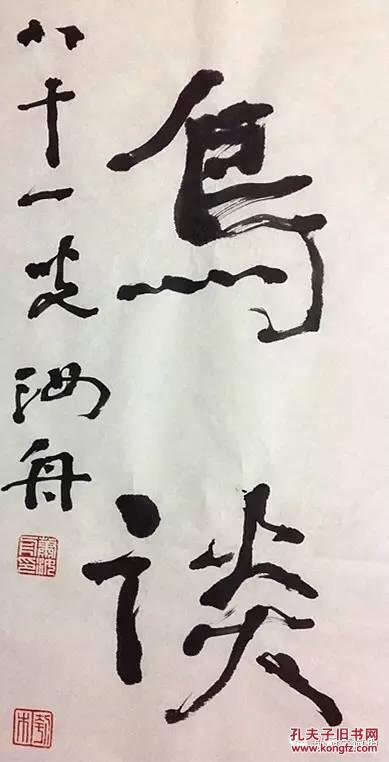 鳥談
八十一叟汝舟
孔夫子旧书网
www.kongfz.com